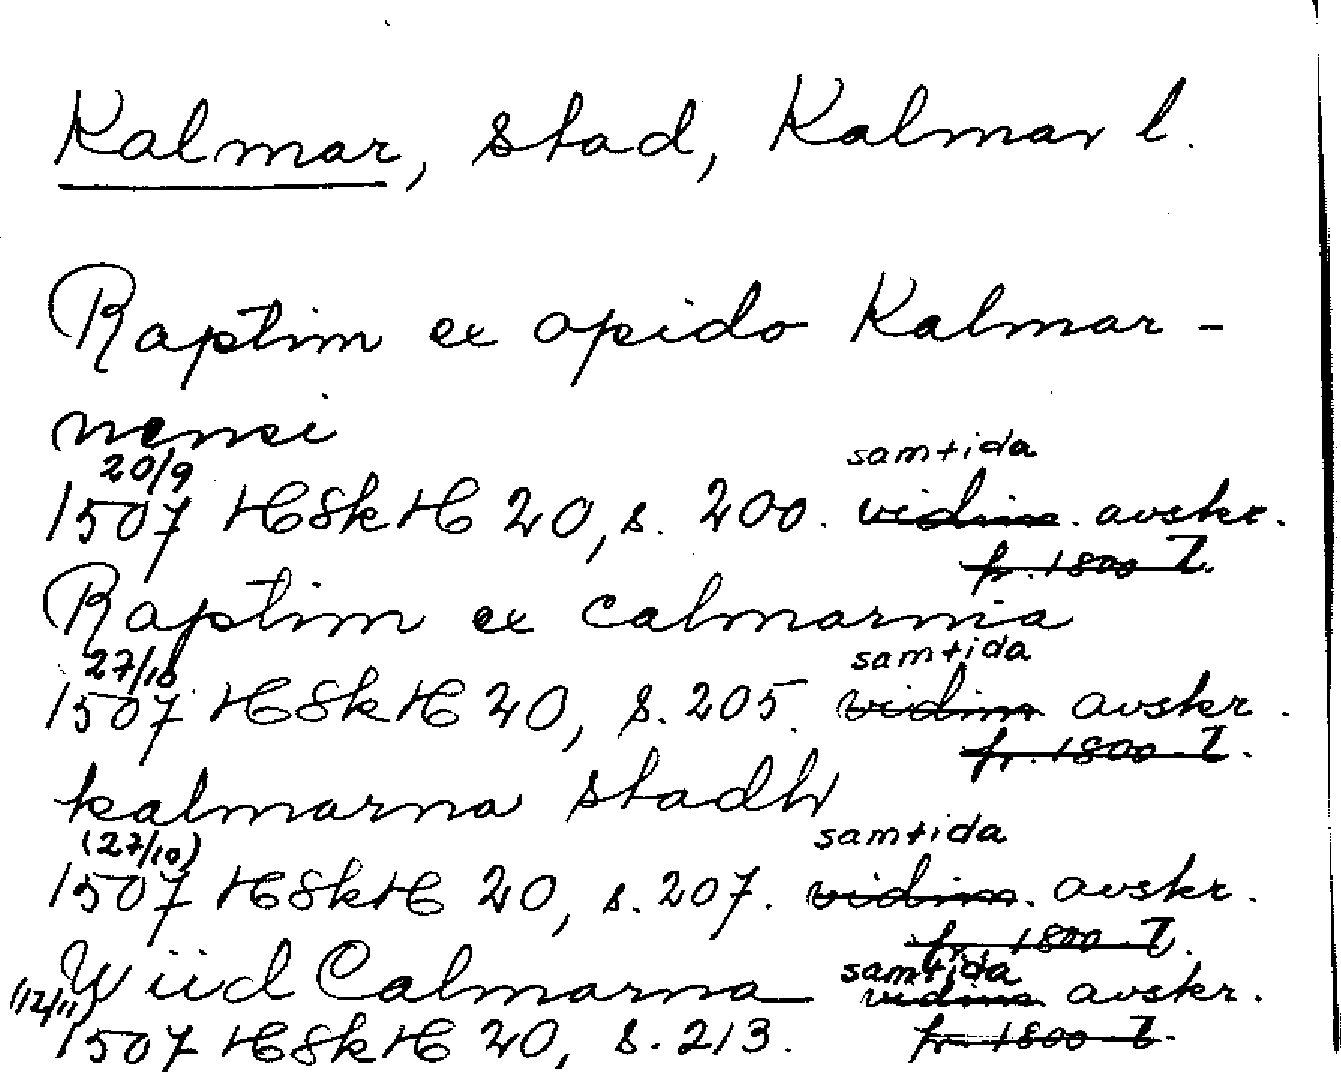 Kalmar, stad, Kalmar l.
Raptim ex opido Kalmar-
nensi
20/9 samtida
1507 HSkH 20, s. 200. vidim. avskr.
fr. 1800-t.
Raptim ex calmarnia
27/10 samtida
1507 HSkH 20, s. 205. vidim avskr.
fr. 1800-t.
kalmarna stadh
(27/10) samtida
1507 HSkH 20, s. 207. vidim. avskr.
fr. 1800-t.
samtida
Wiid Calmarna vidim avskr.
(12/11)
1507 HSkH 20, s. 213. fr. 1800-t.